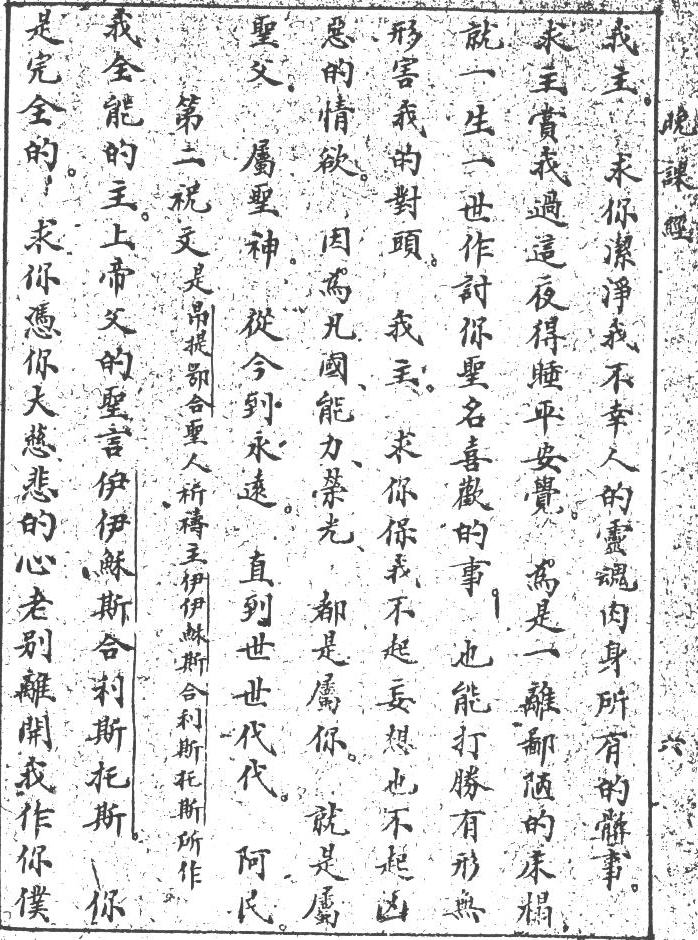 晚課經 六
我主。 求你潔淨我不幸人的靈魂肉身所有的髒事。
求主賞我過這夜得睡平安覺。 為是一離鄙陋的床榻、
就一生一世作討你聖名喜歡的事。 也能打勝有形無
形害我的對頭。 我主。求你保我不起妄想也不起凶
惡的情欲。 因為凡國、能力、榮光、都是屬你。 就是屬
聖父。 屬聖神。 從今到永遠。 直到世世代代。 阿民。
第二祝文是帛提鄂合聖人祈禱主伊伊穌斯合利斯托斯所作
我全能的主。上帝父的聖言伊伊穌斯合利斯托斯。 你
是完全的。 求你憑你大慈悲的心老別離開我作你僕